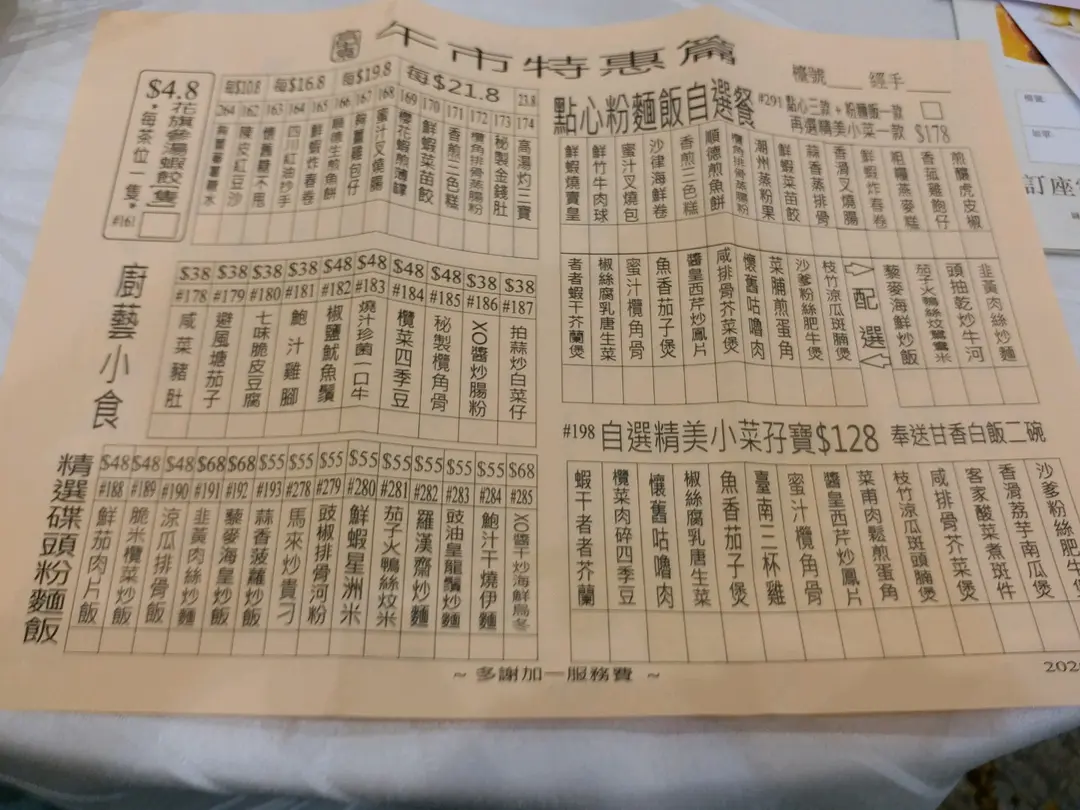 午市特惠篇
檯號 經手
$4.8
花旗參湯蝦餃(一隻)
•每茶位一隻•
#161
每$10.8
每$16.8
每$19.8
每$21.8
23.8
264
162 陳皮紅豆沙
163 懷舊雞不甩
164 四川紅油抄手
165 鮮蝦炸春卷
166 順德生煎魚餅
167
168 蜜汁叉燒腸
169 櫻花蝦煎薄罉
170 鮮蝦菜苗餃
171 香煎三色糕
172 欖角排骨蒸腸粉
173 秘製金錢肚
174 高湯灼三寶
點心粉麵飯自選餐
#291 點心三款+粉麵飯一款
再選精美小菜一款 $178
鮮蝦燒賣皇
鮮竹牛肉球
蜜汁叉燒包
沙律海鮮卷
香煎三色糕
順德煎魚餅
欖角排骨蒸腸粉
潮州蒸粉果
鮮蝦菜苗餃
蒜香蒸排骨
香滑叉燒腸
鮮蝦炸春卷
粗糧蒸麥糕
香菰雞飽仔
煎釀虎皮椒
者者蝦干芥蘭煲
椒絲腐乳唐生菜
蜜汁欖角骨
魚香茄子煲
醬皇西芹炒鳳片
咸排骨芥菜煲
懷舊咕嚕肉
菜脯煎蛋角
沙爹粉絲肥牛煲
枝竹涼瓜斑腩煲
配選
藜麥海鮮炒飯
茄子火鴨絲炆鴛鴦米
頭抽乾炒牛河
韭黃肉絲炒麵
廚藝小食
$38 #178 咸菜豬肚
$38 #179 避風塘茄子
$38 #180 七味脆皮豆腐
$38 #181 鮑汁雞腳
$48 #182 椒鹽魷魚鬚
$48 #183 燒汁珍菌一口牛
$48 #184 欖菜四季豆
$48 #185 秘製欖角骨
$38 #186 XO醬炒腸粉
$38 #187 拍蒜炒白菜仔
精選碟頭粉麵飯
$48 #188 鮮茄肉片飯
$48 #189 脆米欖菜炒飯
$48 #190 涼瓜排骨飯
$68 #191 韭黃肉絲炒麵
$68 #192 藜麥海皇炒飯
$55 #193 蒜香菠蘿炒飯
$55 #278 馬來炒貴刁
$55 #279 豉椒排骨河粉
$55 #280 鮮蝦星洲米
$55 #281 茄子火鴨絲炆米
$55 #282 羅漢齋炒麵
$55 #283 豉油皇龍鬚炒麵
$55 #284 鮑汁干燒伊麵
$68 #285 XO醬干炒海鮮烏冬
#198 自選精美小菜孖寶$128 奉送甘香白飯二碗
蝦干者者芥蘭
欖菜肉碎四季豆
懷舊咕嚕肉
椒絲腐乳唐生菜
魚香茄子煲
臺南三杯雞
蜜汁欖角骨
醬皇西芹炒鳳片
菜甫肉鬆煎蛋角
枝竹涼瓜斑頭腩煲
咸排骨芥菜煲
客家酸菜煮斑件
香滑荔芋南瓜煲
沙爹粉絲肥牛
~ 多謝加一服務費 ~
訂座